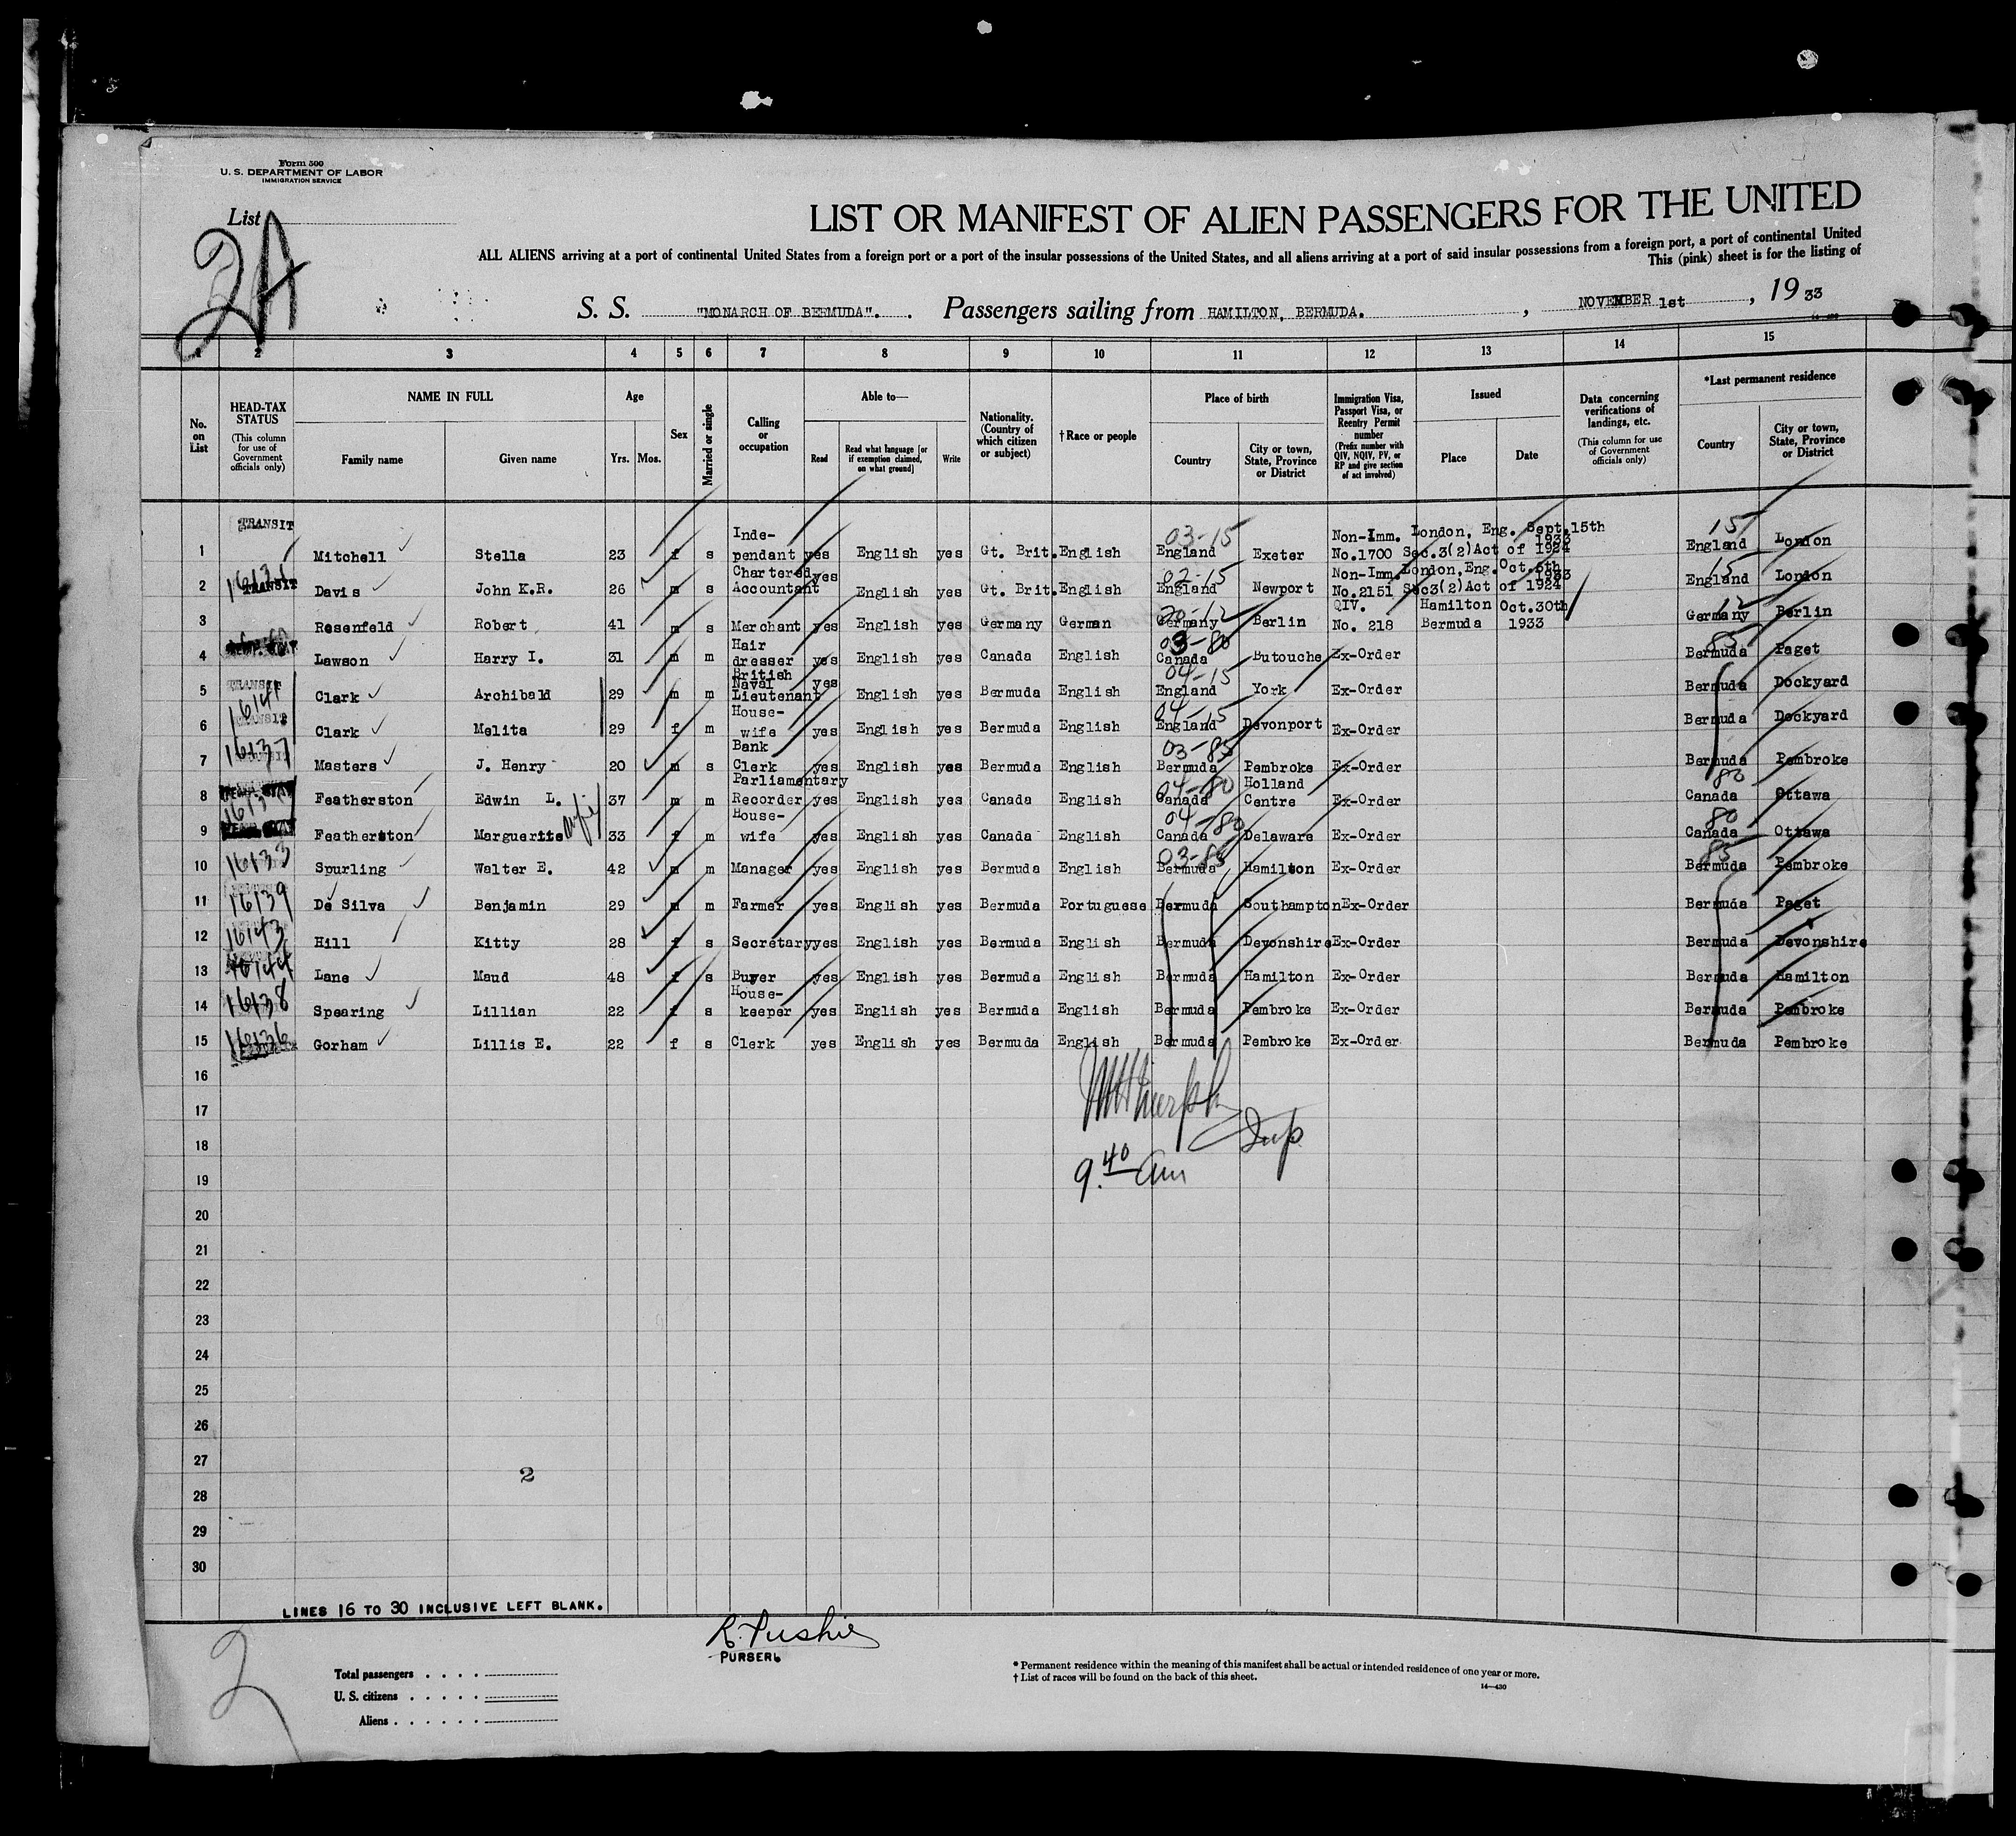 Form 500
U. S. DEPARTMENT OF LABOR
IMMIGRATION SERVICE
List
2A
LIST OR MANIFEST OF ALIEN PASSENGERS FOR THE UNITED
ALL ALIENS arriving at a port of continental United States from a foreign port or a port of the insular possessions of the United States, and all aliens arriving at a port of said insular possessions from a foreign port, a port of continental United
This (pink) sheet is for the listing of
S. S. "MONARCH OF BERMUDA". Passengers sailing from HAMILTON, BERMUDA. , NOVEMBER 1st , 19 33
1 2 3 4 5 6 7 8 9 10 11 12 13 14 15
No. on List
HEAD-TAX STATUS (This column for use of Government officials only)
NAME IN FULL
Family name Given name
Age
Yrs. Mos.
Sex
Married or single
Calling or occupation
Able to—
Read Read what language [or if exemption claimed, on what ground] Write
Nationality. (Country of which citizen or subject)
†Race or people
Place of birth
Country City or town, State, Province or District
Immigration Visa, Passport Visa, or Reentry Permit number (Prefix number with QIV, NQIV, PV, or RP and give section of act involved)
Issued
Place Date
Data concerning verifications of landings, etc. (This column for use of Government officials only)
*Last permanent residence
Country City or town, State, Province or District
1 TRANSIT Mitchell Stella 23 f s Inde-pendant yes English yes Gt. Brit. English 03-15 England Exeter Non-Imm. No.1700 London, Eng. Sept.15th 1933 Sec.3(2)Act of 1924 15 England London
2 TRANSIT Davis John K.R. 26 m s Chartered Accountant yes English yes Gt. Brit. English 02-15 England Newport Non-Imm. No.2151 London,Eng.Oct.5th 1933 Sec3(2)Act of 1924 15 England London
3 Rosenfeld Robert 41 m s Merchant yes English yes Germany German 20-12 Germany Berlin QIV. No. 218 Hamilton Bermuda Oct.30th 1933 12 Germany Berlin
4 Lawson Harry I. 31 m m Hair dresser yes English yes Canada English 03-80 Canada Butouche Ex-Order 85 Bermuda Paget
5 TRANSIT Clark Archibald 29 m m British Naval Lieutenant yes English yes Bermuda English 04-15 England York Ex-Order Bermuda Dockyard
6 16141 TRANSIT Clark Melita 29 f m House-wife yes English yes Bermuda English 04-15 England Devonport Ex-Order Bermuda Dockyard
7 16137 Masters J. Henry 20 m s Bank Clerk yes English yes Bermuda English 03-85 Bermuda Pembroke Ex-Order Bermuda Pembroke
8 Featherston Edwin L. 37 m m Parliamentary Recorder yes English yes Canada English 04-80 Canada Holland Centre Ex-Order 80 Canada Ottawa
9 Featherston Marguerite wife 33 f m House-wife yes English yes Canada English 04-80 Canada Delaware Ex-Order 80 Canada Ottawa
10 16133 Spurling Walter E. 42 m m Manager yes English yes Bermuda English 03-85 Bermuda Hamilton Ex-Order 85 Bermuda Pembroke
11 16139 De Silva Benjamin 29 m m Farmer yes English yes Bermuda Portuguese Bermuda Southampton Ex-Order Bermuda Paget
12 16143 Hill Kitty 28 f s Secretary yes English yes Bermuda English Bermuda Devonshire Ex-Order Bermuda Devonshire
13 16144 Lane Maud 48 f s Buyer yes English yes Bermuda English Bermuda Hamilton Ex-Order Bermuda Hamilton
14 16138 Spearing Lillian 22 f s House-keeper yes English yes Bermuda English Bermuda Pembroke Ex-Order Bermuda Pembroke
15 16136 Gorham Lillis E. 22 f s Clerk yes English yes Bermuda English Bermuda Pembroke Ex-Order Bermuda Pembroke
16
17
18
9.40 am
19
20
21
22
23
24
25
26
27
2
28
29
30
LINES 16 TO 30 INCLUSIVE LEFT BLANK.
R. Pushie
PURSER.
2
Total passengers
U. S. citizens
Aliens
* Permanent residence within the meaning of this manifest shall be actual or intended residence of one year or more.
† List of races will be found on the back of this sheet.
14—430